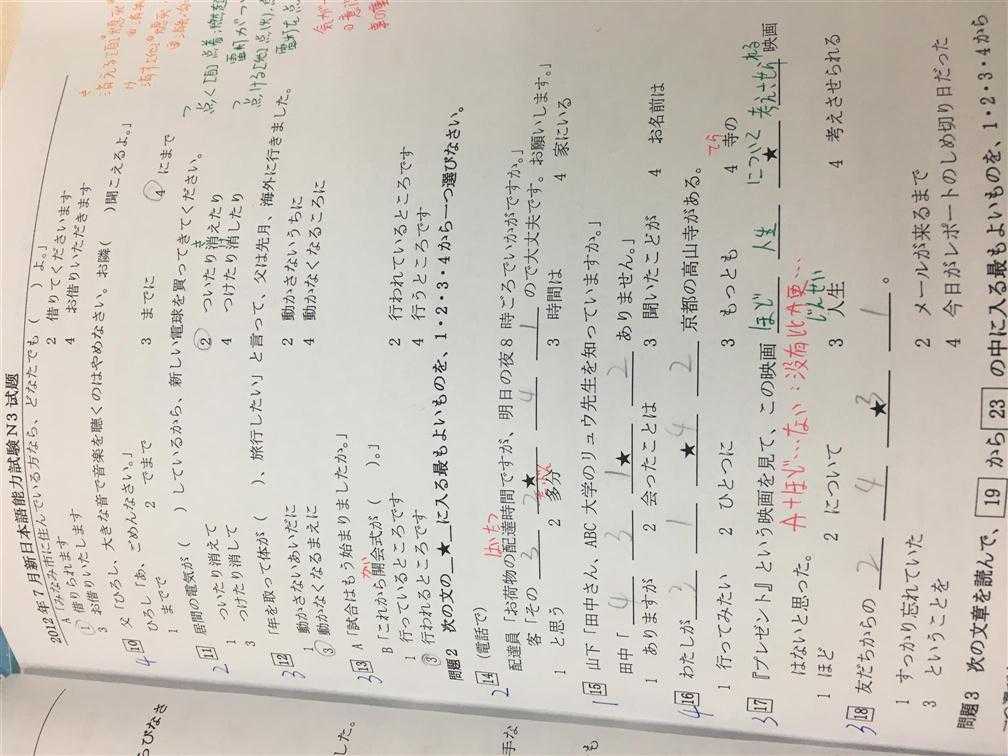 2012年7月新日本語能力試験N3 试题
A「みなみ市に住んでいる方なら、どなたでも（ ）よ。」
1 借りられます 2 借りてくださいます
3 お借りいたします 4 お借りいただきます
4 10 父「ひろし、大きな音で音楽を聴くのはやめなさい。お隣（ ）聞こえるよ。」
ひろし「あ、ごめんなさい。」
1 までで 2 でまで 3 までに 4 にまで
2 11 居間の電気が（ ）しているから、新しい電球を買ってきてください。
1 ついたり消えて 2 ついたり消えたり
3 つけたり消して 4 つけたり消したり
3 12 「年を取って体が（ ）、旅行したい」と言って、父は先月、海外に行きました。
1 動かさないあいだに 2 動かさないうちに
3 動かなくなるまえに 4 動かなくなるころに
3 13 A「試合はもう始まりましたか。」
かい
B「これから開会式が（ ）。」
1 行っているところです 2 行われているところです
3 行われるところです 4 行うところです
問題2 次の文の ★ に入る最もよいものを、1・2・3・4から一つ選びなさい。
2 14 （電話で）
配達員「お荷物の配達時間ですが、明日の夜8時ごろでいかがですか。」
客「その 3 2★ 4 1 ので大丈夫です。お願いします。」
1 と思う 2 多分 3 時間は 4 家にいる
1 15 山下「田中さん、ABC大学のリュウ先生を知っていますか。」
田中「 4 3 1★ 2 ありません。」
1 ありますが 2 会ったことは 3 聞いたことが 4 お名前は
4 16 わたしが 3 1 4★ 2 京都の高山寺がある。
てら
1 行ってみたい 2 ひとつに 3 もっとも 4 寺の
3 17 『プレゼント』という映画を見て、この映画 ほど 人生 について★ 考えさせられる 映画
はないと思った。 A+ほど…ない：没有比A更…
じんせい
1 ほど 2 について 3 人生 4 考えさせられる
3 18 友だちからの 2 4 3★ 1 。
1 すっかり忘れていた 2 メールが来るまで
3 ということを 4 今日がレポートのしめ切り日だった
問題3 次の文章を読んで、19から23の中に入る最もよいものを、1・2・3・4から